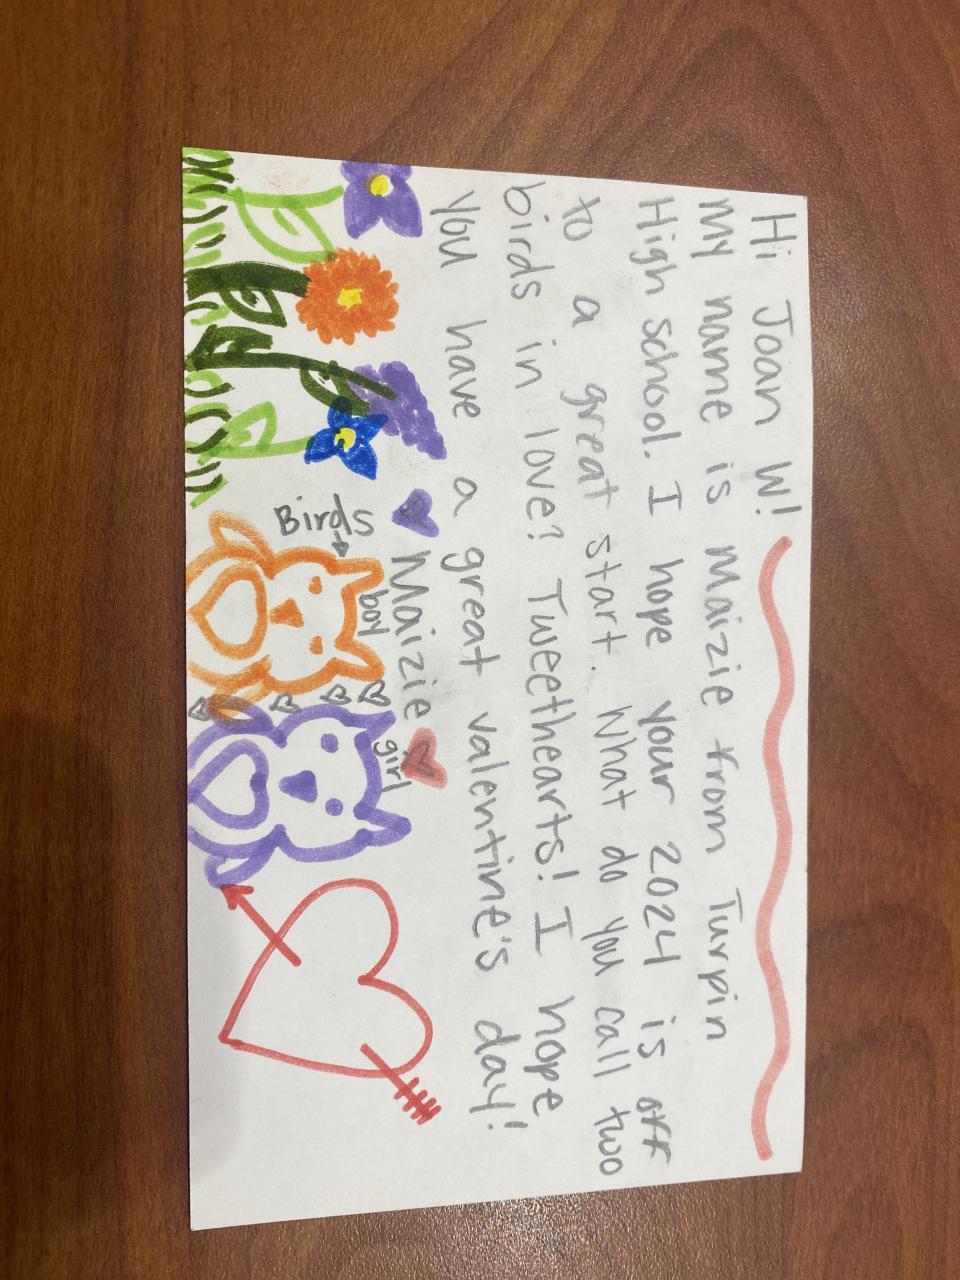 Hi Joan W!
My name is Maizie from Turpin
High school. I hope your 2024 is off
to a great start. What do you call two
birds in love? Tweethearts! I hope
you have a great valentine's day!
Maizie
Birds
boy
girl